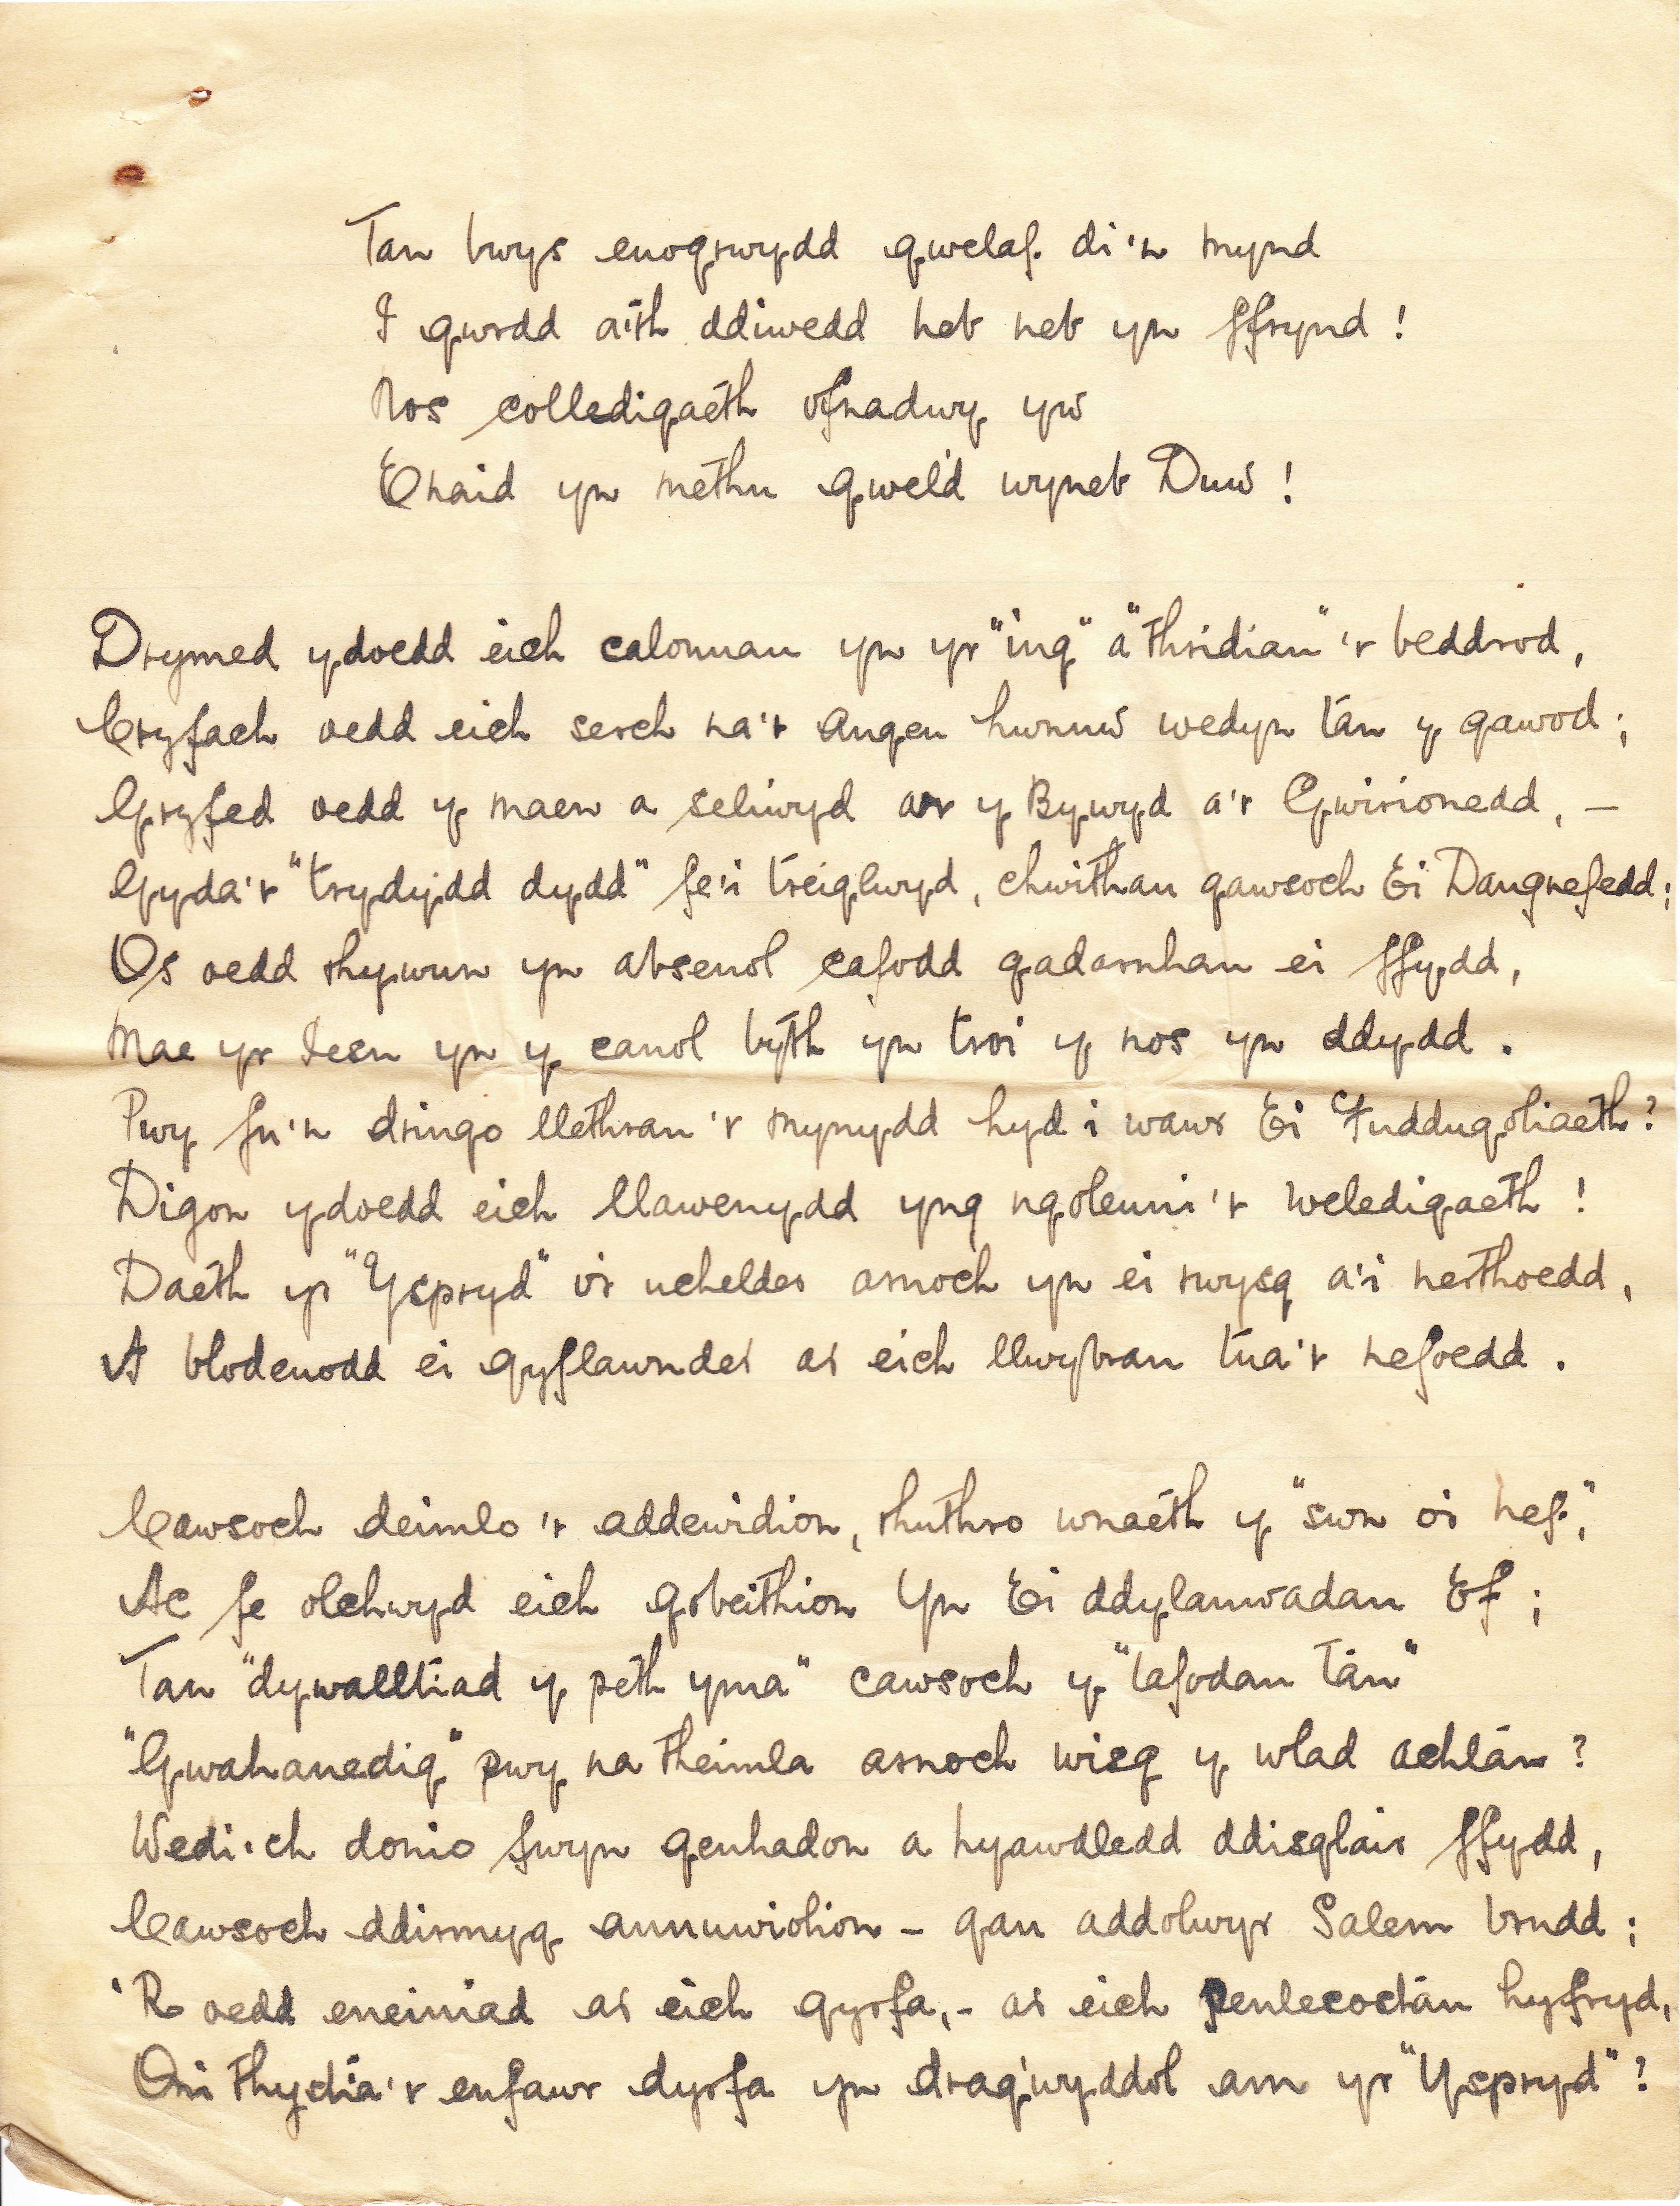 Tan bwys euogrwydd gwelaf di'n mynd
I gwrdd a'th ddiwedd heb neb yn ffrynd!
Nos colledigaeth ofnadwy yw
Enaid yn methu gweld wyneb Duw!
Drymed ydoedd eich calonnau yn yr "ing" a "thridiau"'r beddrod,
Cryfach oedd eich serch na'r angeu hwnnw wedyn tan y gawod;
Gryfed oedd y maen a seliwyd ar y Bywyd a'r Gwirionedd, –
Gyda'r "trydydd dydd" fe'i treiglwyd, chwithau gawsoch Ei Dangnefedd;
Os oedd rhywun yn absenol cafodd gadarnhau ei ffydd,
Mae yr Iesu yn y canol byth yn troi y nos yn ddydd.
Pwy fu'n dringo llethrau'r mynydd hyd i wawr Ei Fuddugoliaeth?
Digon ydoedd eich llawenydd yng ngoleuni'r weledigaeth!
Daeth yr "Yspryd" o'r uchelder arnoch yn ei rwysg a'i nerthoedd,
A blodeuodd ei gyflawnder ar eich llwybrau tua'r nefoedd.
Cawsoch deimlo'r addewidion, rhuthro wnaeth y "swn o'r nef",
Ac fe olchwyd eich gobeithion Yn Ei ddylanwadau Ef;
Tan "dywalltiad y peth yma" cawsoch y "tafodau tân"
"Gwahanedig" pwy na theimla arnoch wisg y wlad achlân?
Wedi'ch donio fwyn genhadon a hyawdledd ddisglair ffydd,
Cawsoch ddirmyg annuwiolion – gan addolwyr Salem brudd;
'R oedd eneiniad ar eich gyrfa, – ar eich Pentecostau hyfryd,
Oni thystia'r enfawr dyrfa yn dragwyddol am yr "Yspryd"?